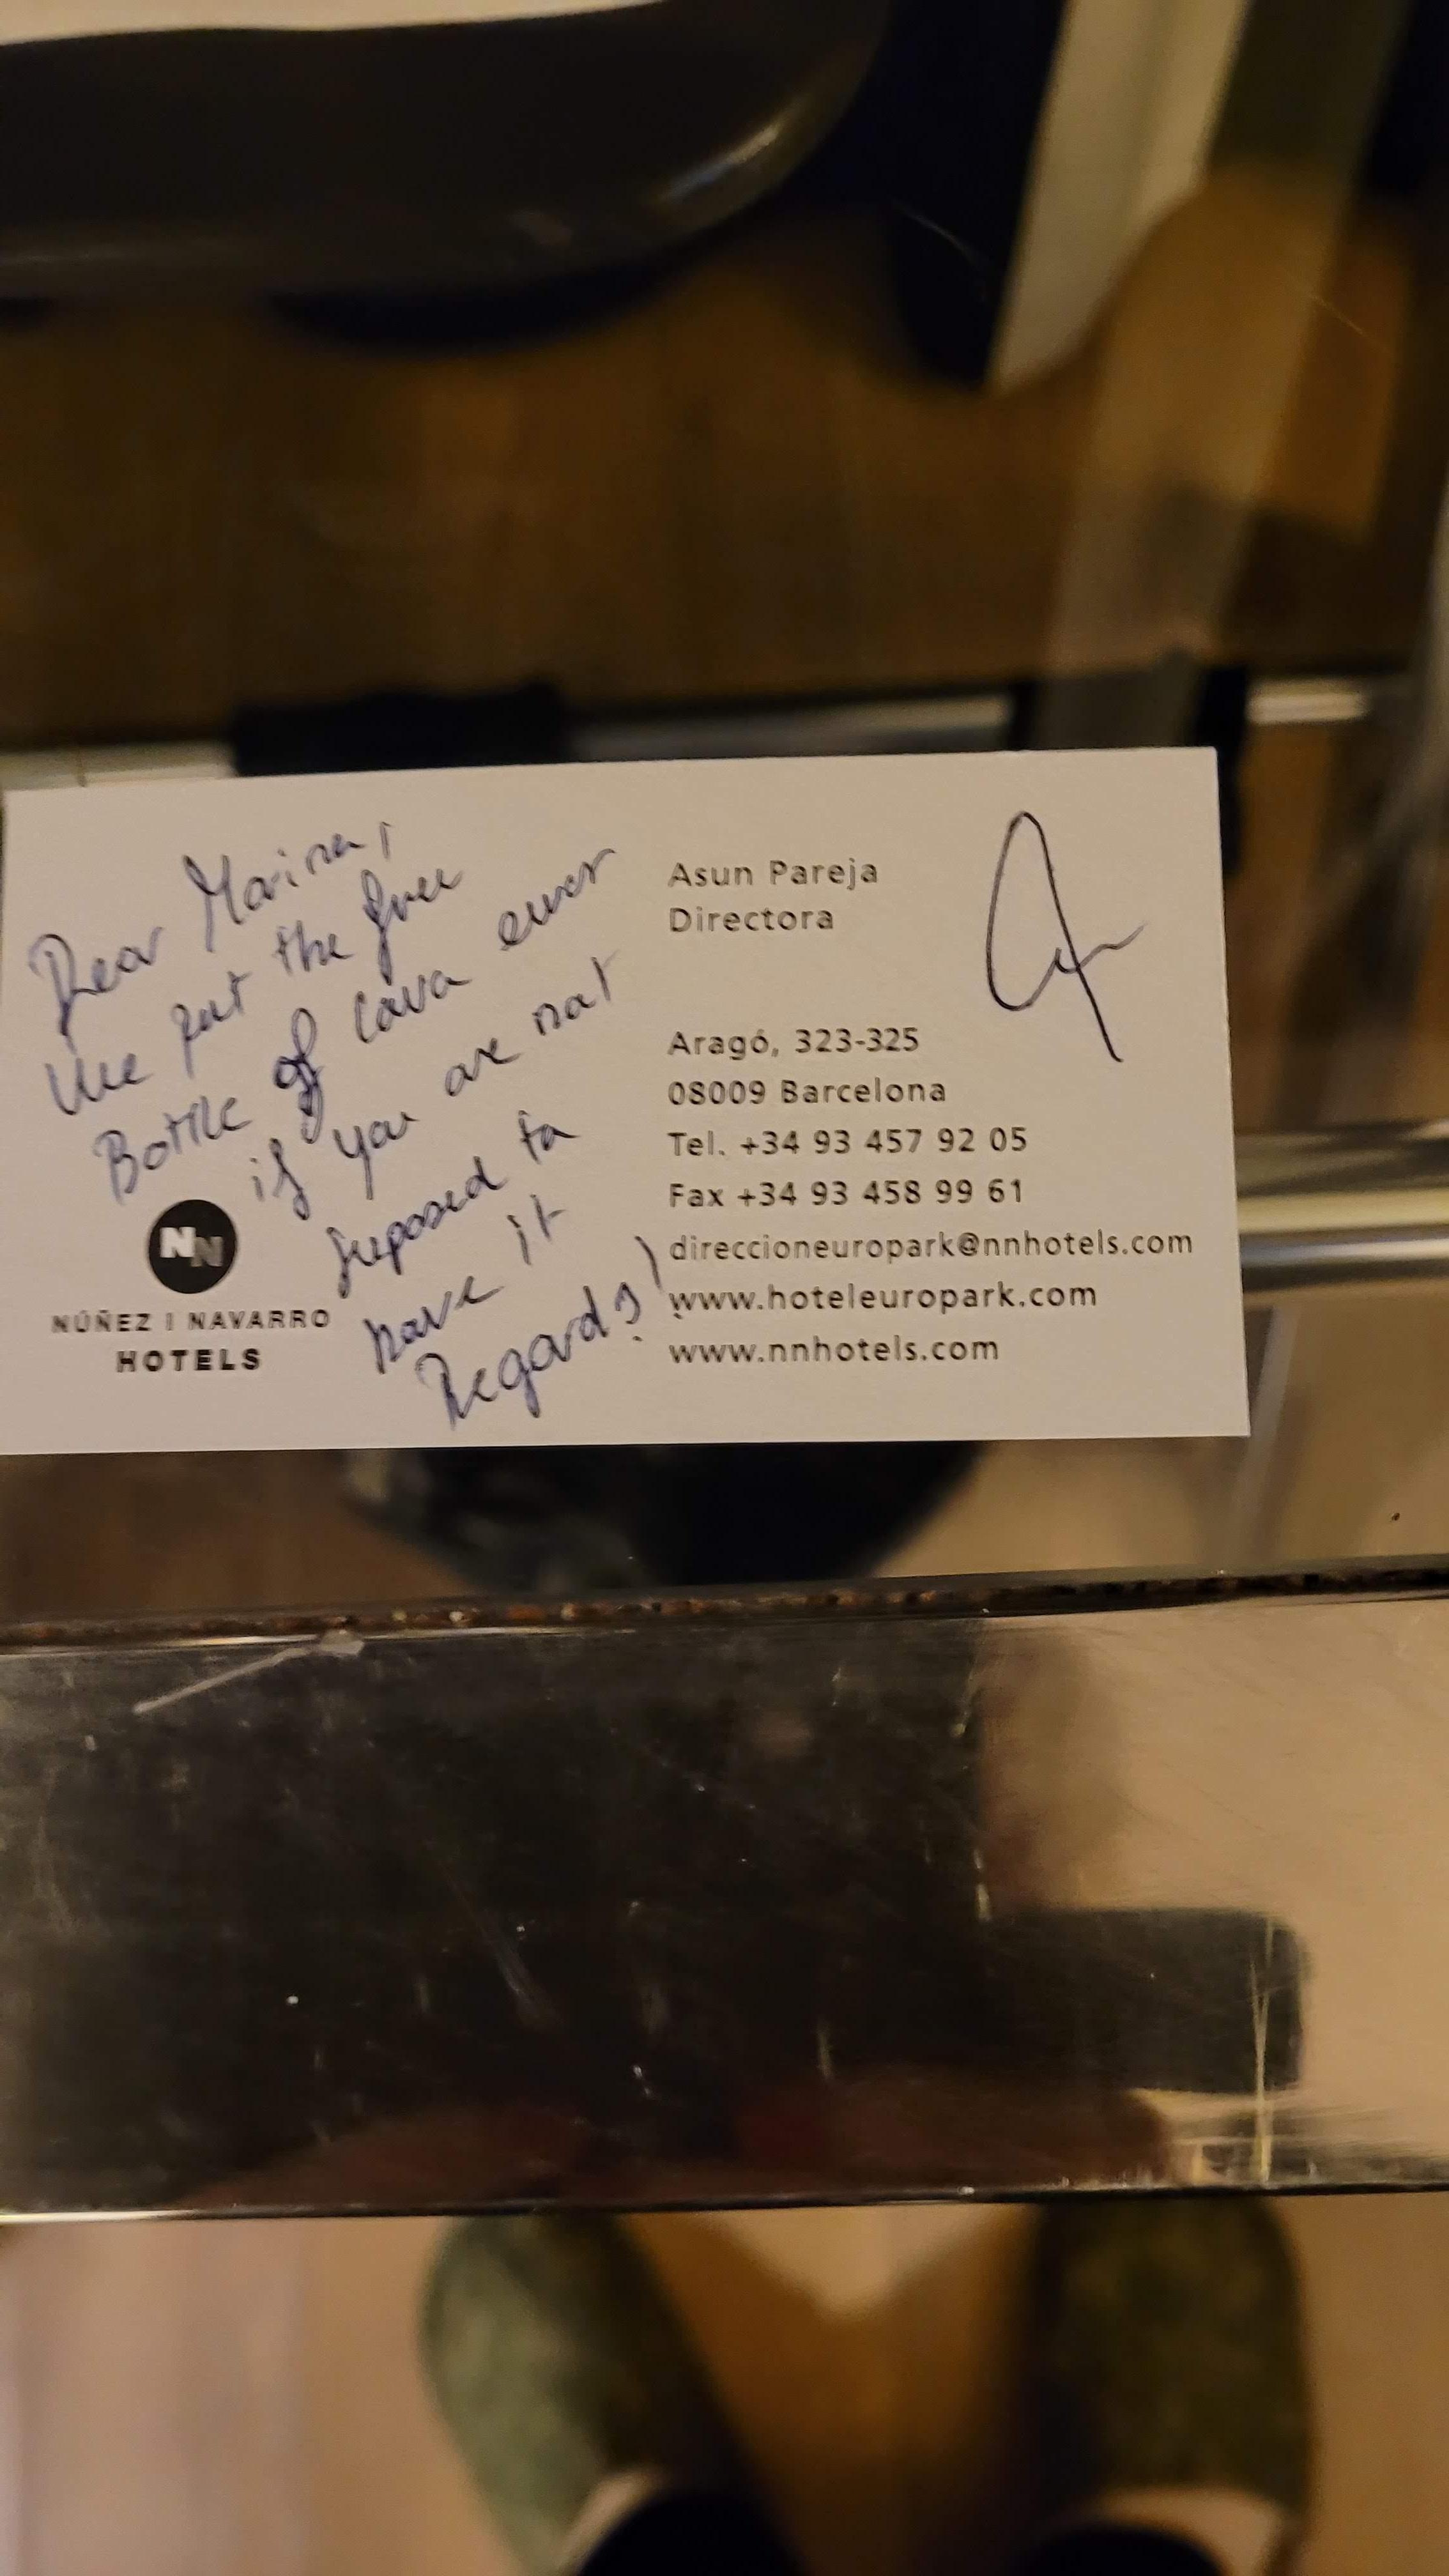 Dear Marina,
We put the free
Bottle of Cava ever
if you are not
suposed to
have it
Regards!
NN
NÚÑEZ I NAVARRO
HOTELS
Asun Pareja
Directora
Aragó, 323-325
08009 Barcelona
Tel. +34 93 457 92 05
Fax +34 93 458 99 61
direccioneuropark@nnhotels.com
www.hoteleuropark.com
www.nnhotels.com